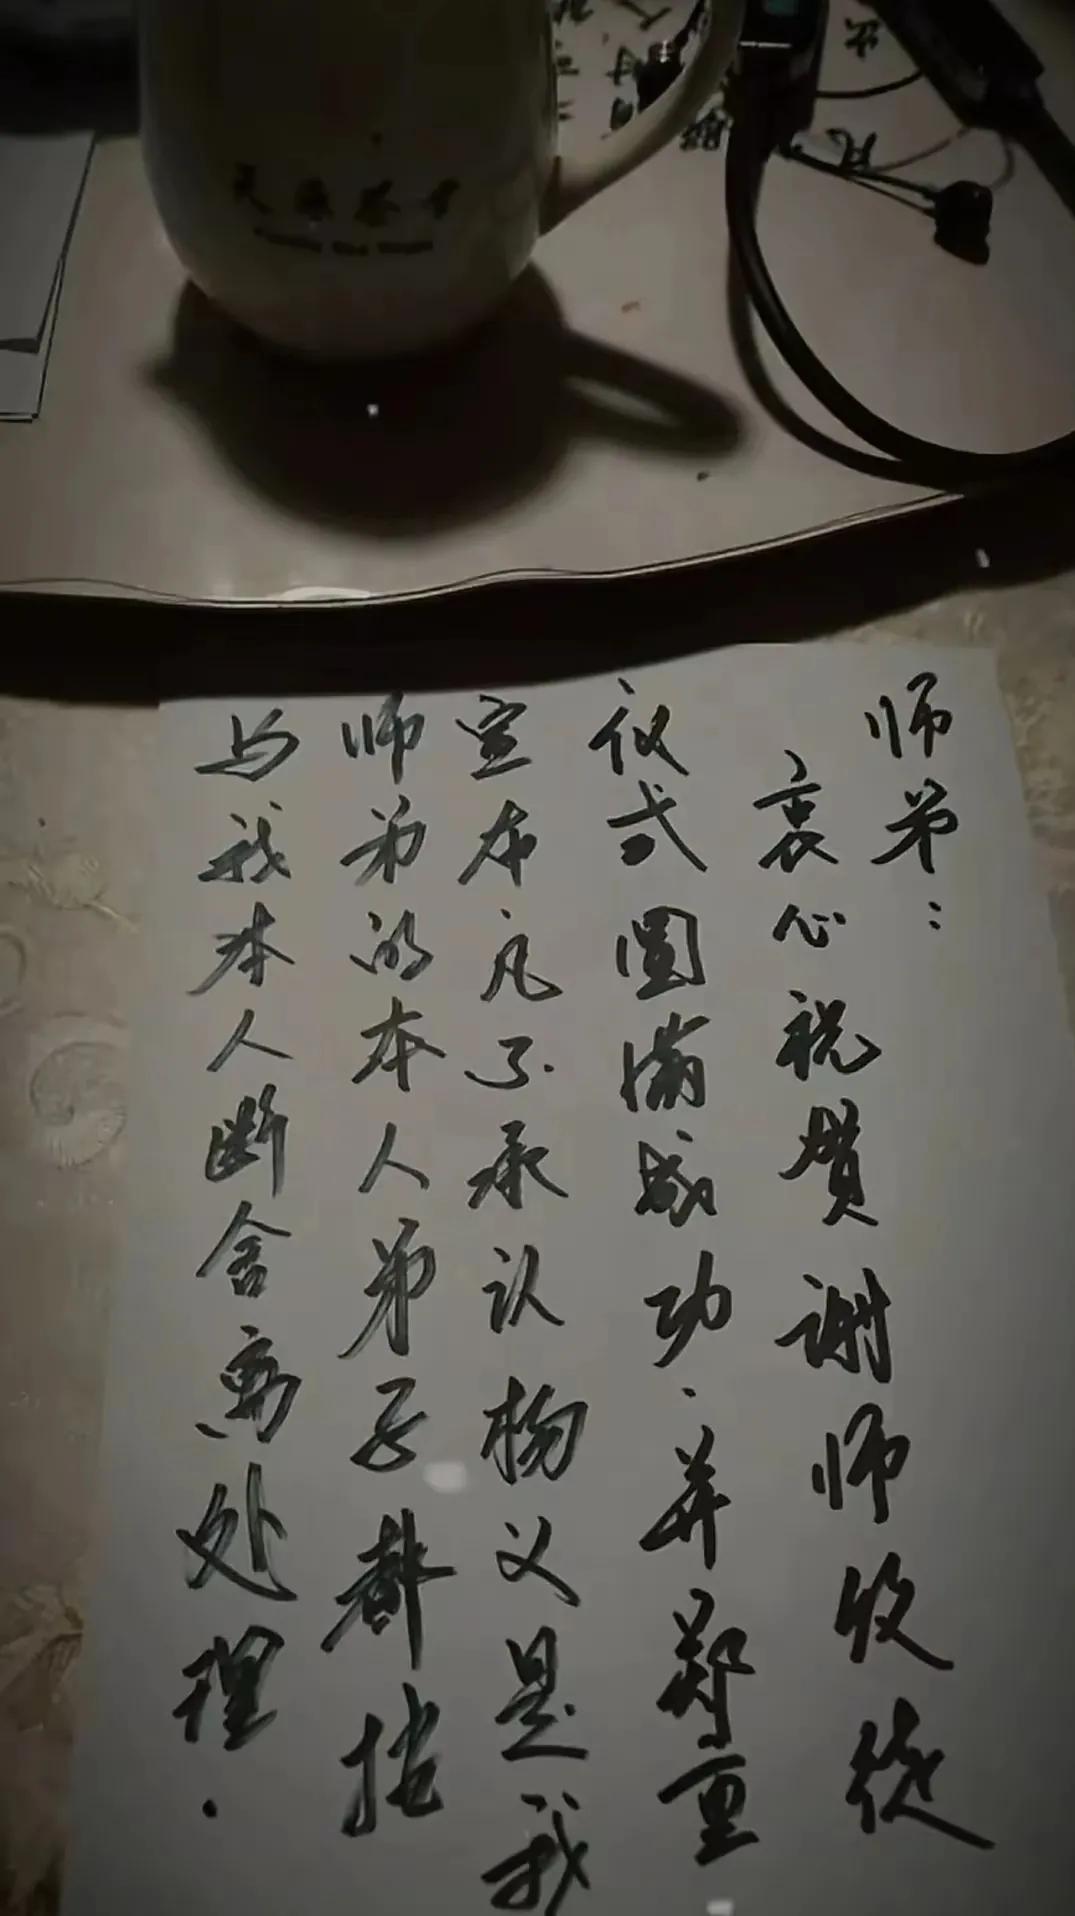 师弟：
衷心祝贺谢师收徒
仪式圆满成功．并郑重
宣本凡了承认杨义是我
师弟的本人弟子都按
与我本人断舍离处理．